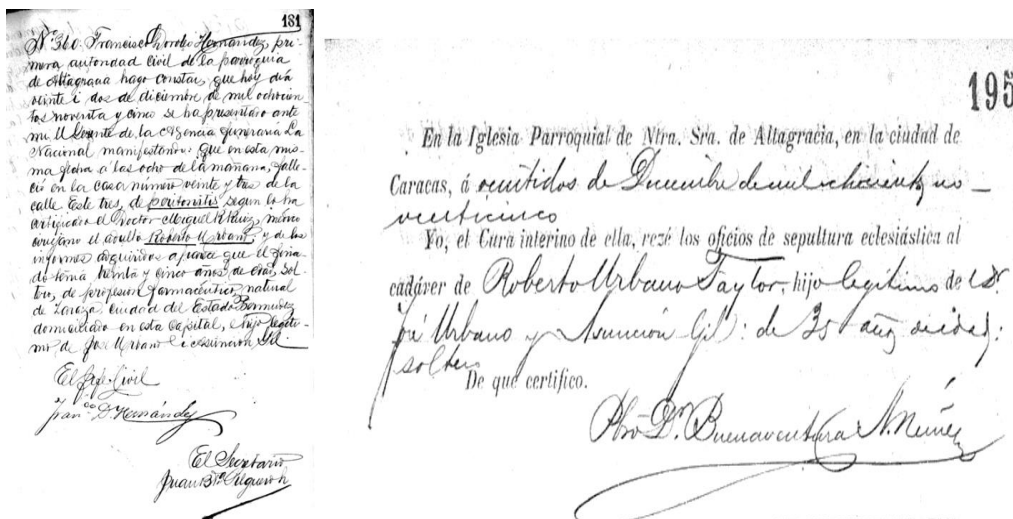 181
Nº 360. Francisco Doroteo Hernández, pri-
mera autoridad Civil de la parroquia
de Altagracia hago constar, que hoy dia
veinte i dos de diciembre de mil ochocien-
tos noventa y cinco se ha presentado ante
mi el Gerente de la Agencia funeraria La
Nacional manifestando: que en esta mis-
ma fecha a las ocho de la mañana, falle-
ció en la casa número veinte y tres de la
calle Este tres, de peritonitis segun lo ha
certificado el Doctor Miguel R Ruiz, médico
cirujano el adulto Roberto Urbano, y de los
informes adquiridos aparece que el fina-
do tenia treinta y cinco años de edad, sol-
tero, de profesion farmacéutico, natural
de Zaraza, ciudad del Estado Bermúdez
domiciliado en esta Capital, e hijo legíti-
mo, de José Urbano i Asunción Gil.
El Jefe Civil
Fran.co D. Hernández
El Secretario,
Juan B.ta
195
En la Iglesia Parroquial de Ntra. Sra. de Altagracia, en la ciudad de
Caracas, á veintidos de Diciembre de mil ochocientos no-
venticinco
Yo, el Cura interino de ella, rezé los oficios de sepultura eclesiástica al
cadáver de Roberto Urbano Taylor, hijo legítimo de
José Urbano y Asunción Gil: de 35 años de edad:
soltero
De que certifico.
Pbro. Dr. Buenaventura A. Núñez